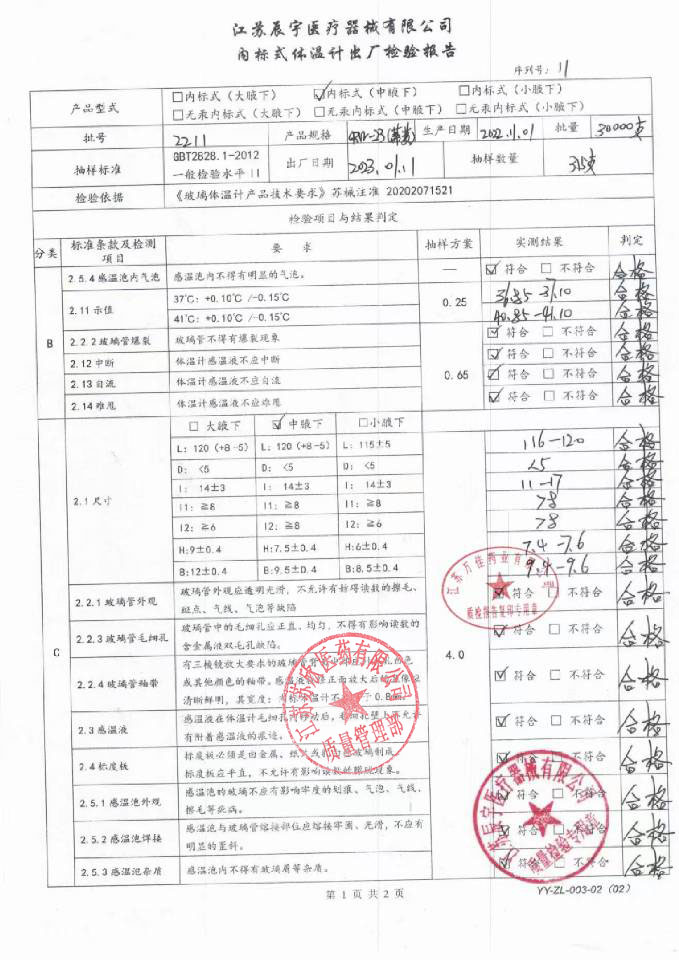 江苏辰宇医疗器械有限公司
内标式体温计出厂检验报告
序列号: 11
产品型式 □内标式（大腋下） ☑内标式（中腋下） □内标式（小腋下）
□无汞内标式（大腋下） □无汞内标式（中腋下） □无汞内标式（小腋下）
批号 2211 产品规格 生产日期 2022.11.01 批量 30000支
抽样标准 GBT2828.1-2012 一般检验水平 II 出厂日期 2023.01.11 抽样数量 315支
检验依据 《玻璃体温计产品技术要求》苏械注准 20202071521
检验项目与结果判定
分类 标准条款及检测项目 要 求 抽样方案 实测结果 判定
B
2.5.4感温泡内气泡 感温泡内不得有明显的气泡。 — ☑ 符合 □ 不符合 合格
2.11示值 37℃: +0.10℃ /-0.15℃ 0.25 36.85-37.10 合格
41℃: +0.10℃ /-0.15℃ 40.85-41.10 合格
2.2.2玻璃管爆裂 玻璃管不得有爆裂现象 0.65 ☑ 符合 □ 不符合 合格
2.12中断 体温计感温液不应中断 ☑ 符合 □ 不符合 合格
2.13自流 体温计感温液不应自流 ☑ 符合 □ 不符合 合格
2.14难甩 体温计感温液不应难甩 ☑ 符合 □ 不符合 合格
C
2.1尺寸 □ 大腋下 ☑ 中腋下 □小腋下 4.0
L: 120 (+8-5) L: 120 (+8-5) L: 115±5 116-120 合格
D: <5 D: <5 D: <5 <5 合格
l: 14±3 l: 14±3 l: 14±3 11-17 合格
l1: ≧8 l1: ≧8 l1: ≧8 >8 合格
l2: ≧6 l2: ≧8 l2: ≧6 >8 合格
H:9±0.4 H:7.5±0.4 H:6±0.4 7.4-7.6 合格
B:12±0.4 B:9.5±0.4 B:8.5±0.4 9.4-9.6 合格
2.2.1玻璃管外观 玻璃管外观应透明光滑，不允许有妨碍读数的擦毛、
斑点、气线、气泡等缺陷 ☑ 符合 □ 不符合 合格
2.2.3玻璃管毛细孔 玻璃管中的毛细孔应正直、均匀，不得有影响读数的
含金属液双毛孔缺陷。 ☑ 符合 □ 不符合 合格
2.2.4玻璃管釉带 有三棱镜放大要求的玻璃管
或其他颜色的釉带。感温液 正面放大后
清晰鲜明，其宽度: ☑ 符合 □ 不符合 合格
2.3感温液 感温液在体温计毛细孔内移动后，毛细孔壁上不允许
有附着感温液的痕迹。 ☑ 符合 □ 不符合 合格
2.4标度板 标度板必须是由金属、纸 玻璃制成
标度板应平直，不允许有影响读数的 现象。 ☑ 符合 □ 不符合 合格
2.5.1感温泡外观 感温泡的玻璃不应有影响牢度的划痕、气泡、气线、
擦毛等疵病。 □ 不符合 合格
2.5.2感温泡焊接 感温泡与玻璃管熔接部位应熔接牢固、光滑，不应有
明显的歪斜。 □ 不符合 合格
2.5.3感温泡杂质 感温泡内不得有玻璃屑等杂质。 ☑ 符合 □ 不符合 合格
江苏万佳药业有
质检报告复印专用章
医药有限公司
质量管理部
江苏辰宇医疗器械有限公司
质量检验专用章
第 1 页 共 2 页
YY-ZL-003-02 (02)